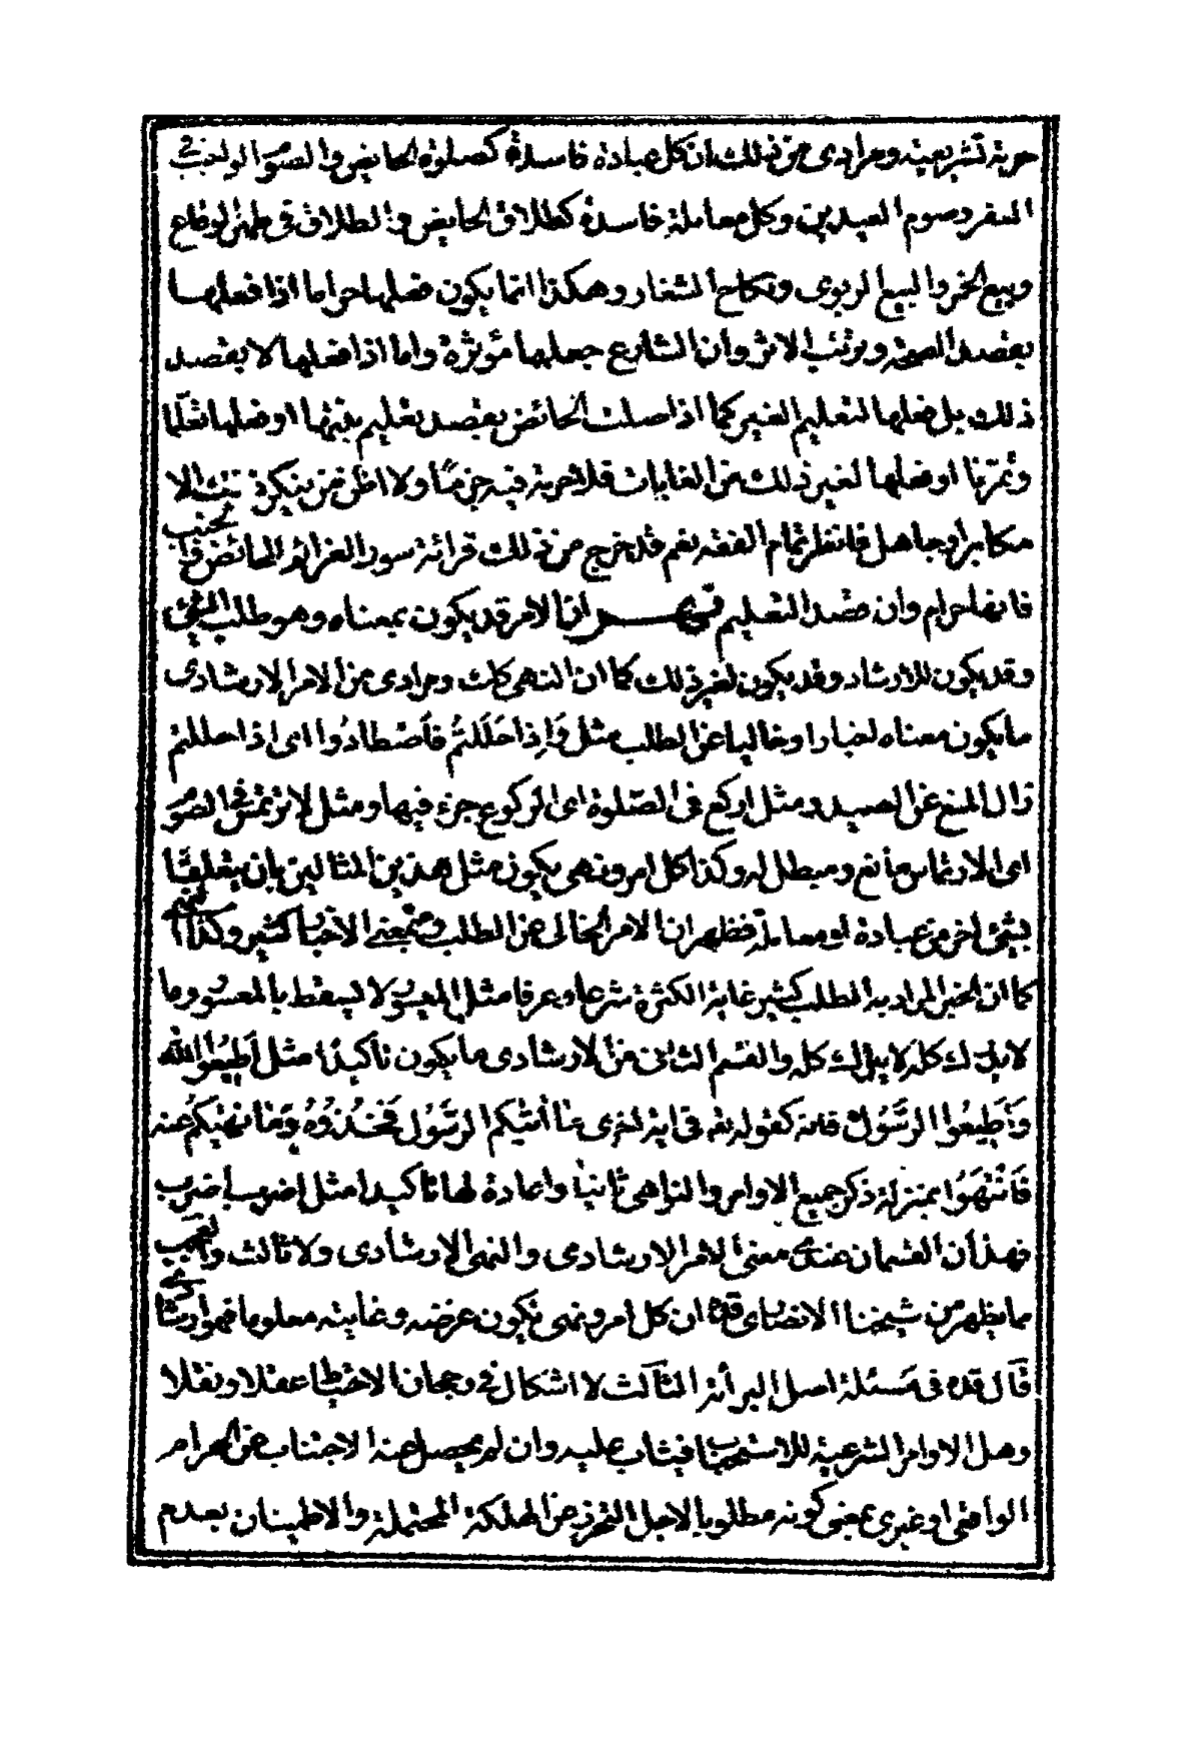 حرمة تشريعية ومرادى من ذلك ان كل عبادة فاسدة كصلوة الحايض والصوم الواجب فى
السفر وصوم العيدين وكل معاملة فاسدة كطلاق الحايض والطلاق فى طهر الوقاع
وبيع الخمر والبيع الربوى ونكاح الشغار وهكذا انما يكون فعلها حراما اذا فعلها
بقصد الصحة وترتب الاثر وان الشارع جعلها مؤثرة واما اذا فعلها لا بقصد
ذلك بل فعلها لتعليم الغير كما اذا صلت الحائض بقصد تعليم بنتها او فعلها تعلما
وتمرنا او فعلها لغير ذلك من الغايات فلا حرمة فيه جزما ولا اظن من ينكر ذلك الا
مكابر او جاهل فانظر تمام الفقه نعم قد خرج من ذلك قرائة سور العزائم للحائض والجنب
فانها حرام وان قصد التعليم ثمّ ان الامر قد يكون بمعناه وهو طلب الشئ
وقد يكون للارشاد وقد يكون لغير ذلك كما ان النهى كذلك ومرادى من الامر الارشادى
ما يكون معناه اخبارا وخاليا عن الطلب مثل وَاِذا حَلَلْتُم فَاصْطادُوا اى اذا حللتم
زال المنع عن الصيد ومثل اركع فى الصّلوة اى الركوع جزء فيها ومثل لا ترتمس فى الصوم
اى الارتماس مانع ومبطل له وكذا كل امر ونهى يكون مثل هذين المثالين بان يتعلقا
بشئ اخر من عبادة او معاملة فظهر ان الامر الخالى عن الطلب وبمعنى الاخبار كثير وكذا النهى
كما ان الخبر المراد به الطلب كثير غاية الكثرة شرعا وعرفا مثل الميسور لا يسقط بالمعسور وما
لا يدرك كله لا يترك كله والقسم الثانى من الارشادى ما يكون تأكيدًا مثل اَطيعُوا الله
وَاَطيعُوا الرَّسُولَ فانه كقوله تعه فى اية اخرى ما اتيكم الرَّسُول فَخُذوُهُ وَمَا نَهيكُم عنه
فَانْتَهَوُا بمنزلة ذكر جميع الاوامر والنواهى ثانيا واعادة لها تاكيدا مثل اضرب اضرب
فهذان القسمان عندى معنى الامر الارشادى والنهى الارشادى ولا ثالث والعجب
مما يظهر من شيخنا الانصارى قده ان كل امر ونهى تكون غرضه وغايته معلوما فهو ارشادى
قال قده فى مسئلة اصل البرائة الثالث لا اشكال فى رجحان الاحتياط عقلا ونقلا
وهل الاوامر الشرعية للاستحباب فيثاب عليه وان لم يحصل عنه الاجتناب عن الحرام
الواقعى او غيرى بمعنى كونه مطلوبا لاجل التحرز عن الهلكة المحتملة والاطمينان بعدم